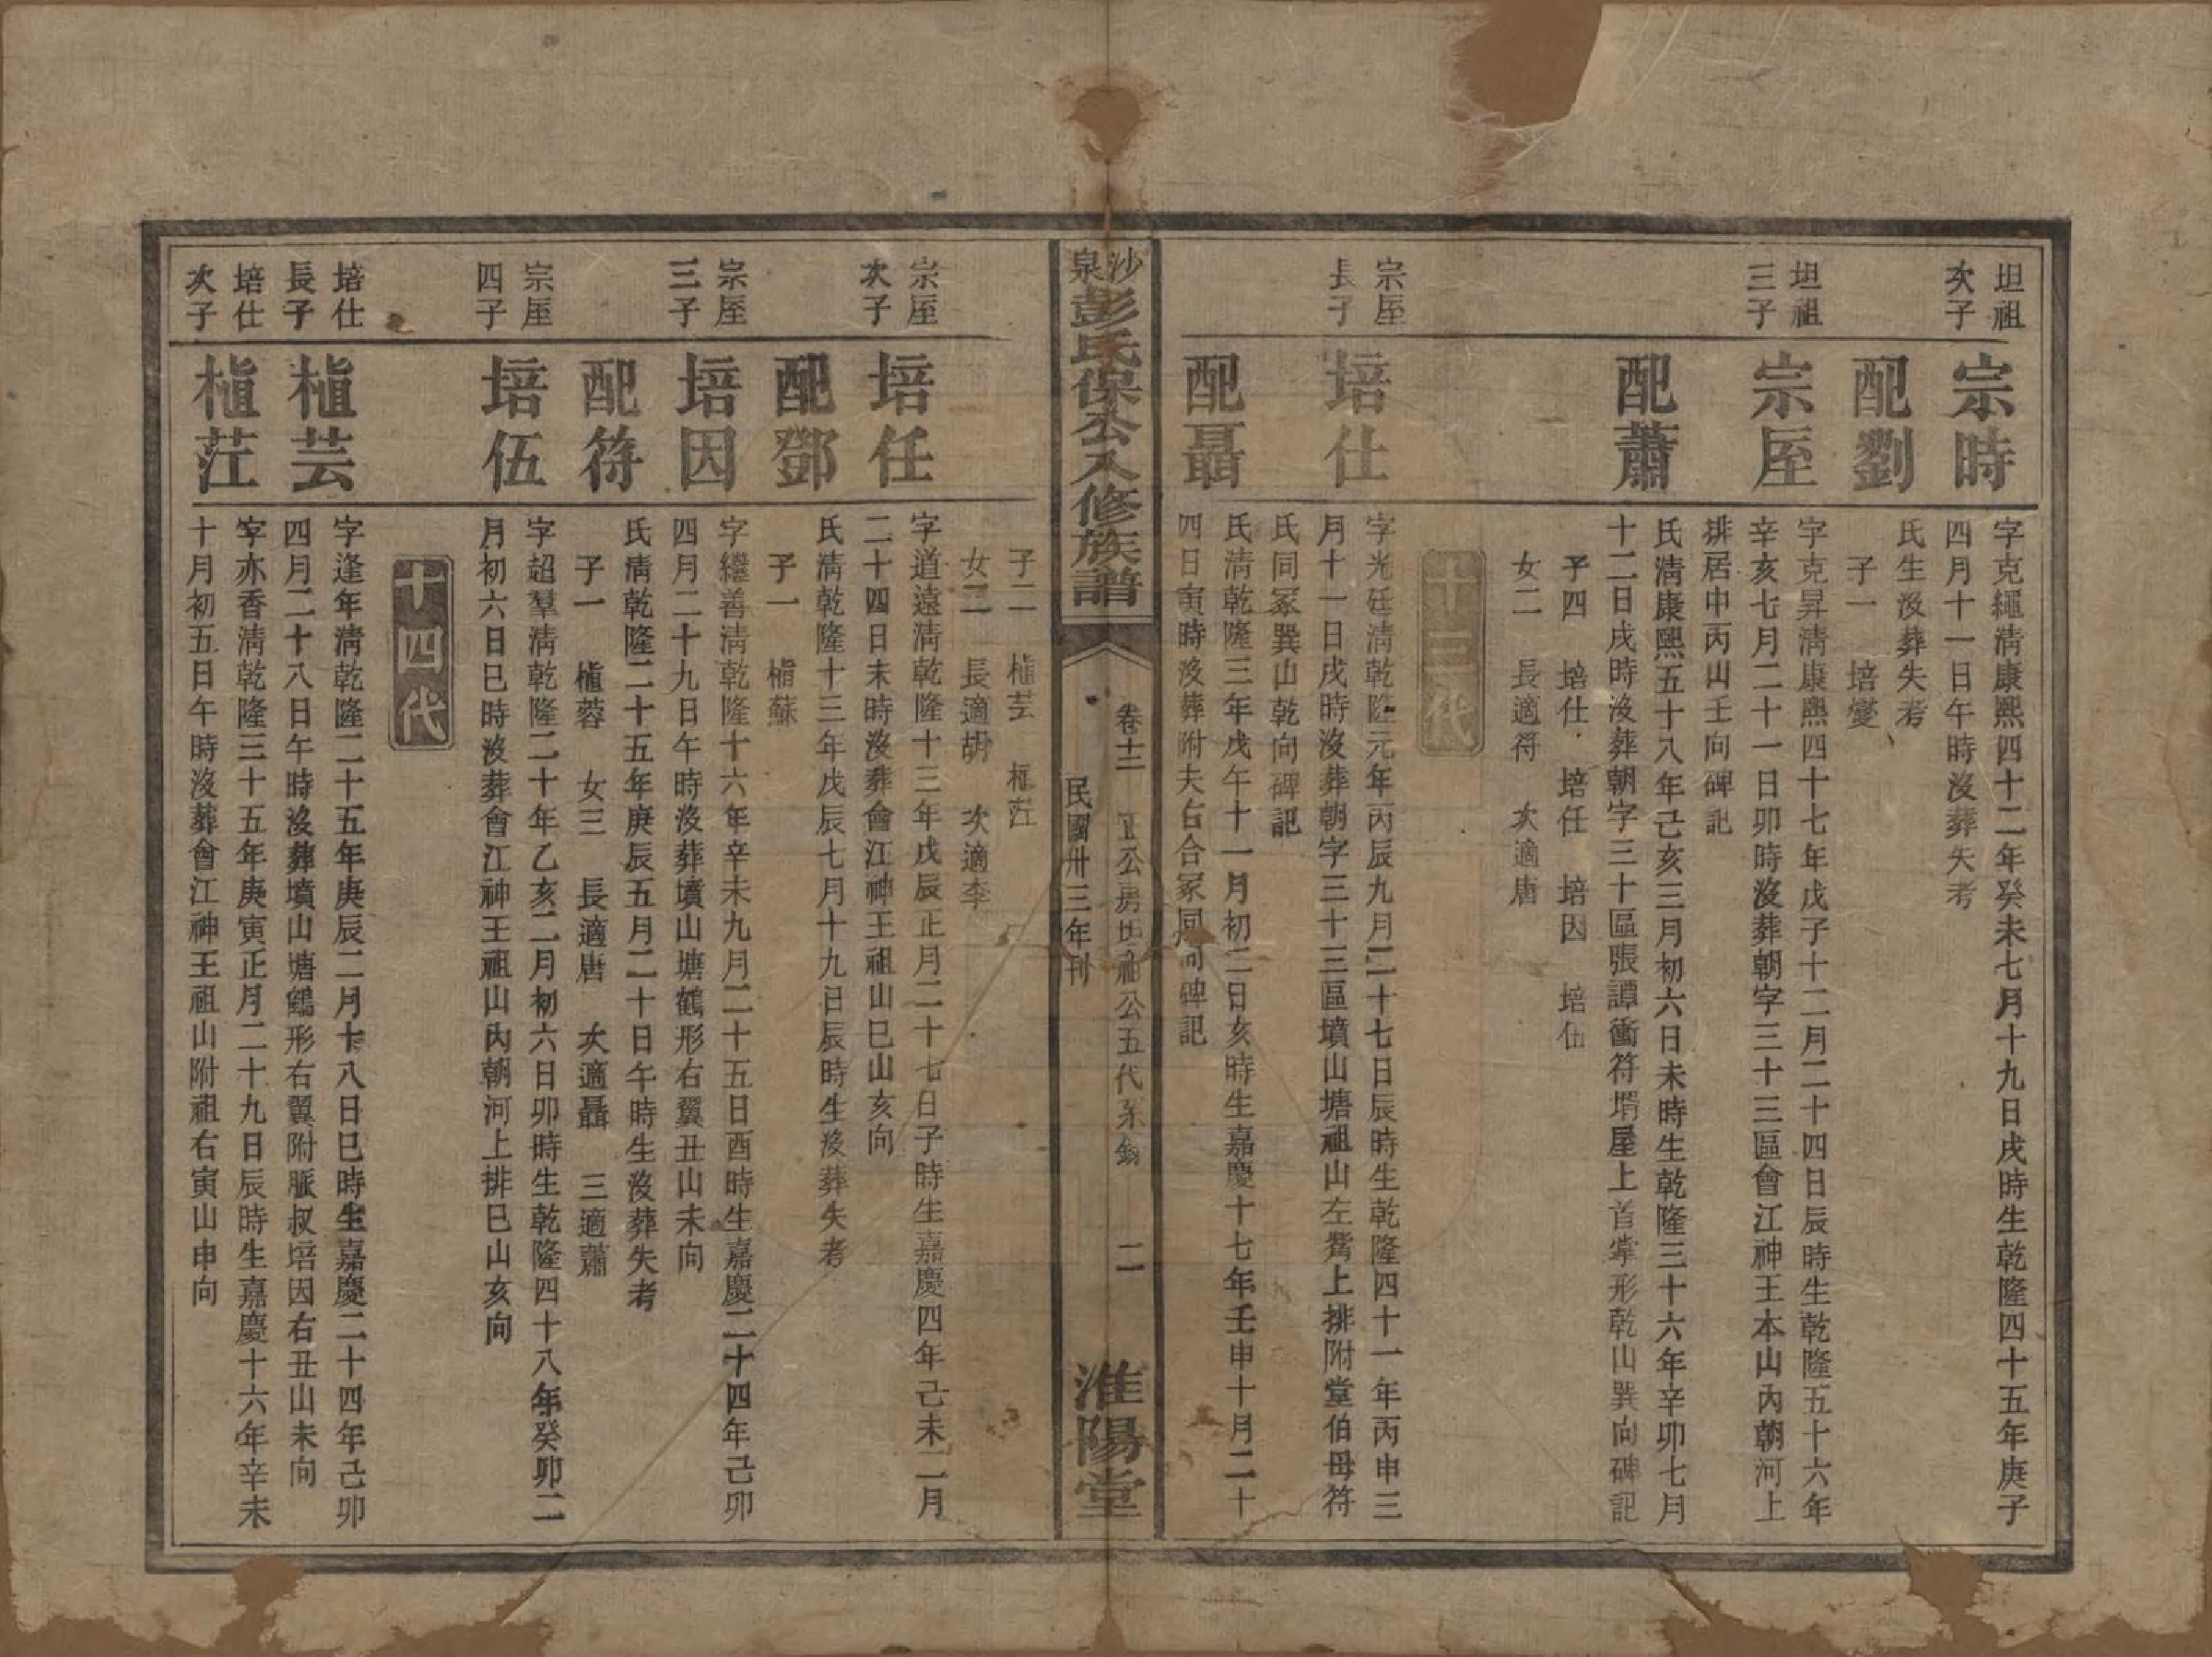 坦祖
次子
宗時
字克繩淸康熙四十二年癸未七月十九日戌時生乾隆四十五年庚子
四月十一日午時沒葬失考
配劉
氏生沒葬失考
子一　培燮
坦祖
三子
宗厔
字克昇淸康熙四十七年戊子十二月二十四日辰時生乾隆五十六年
辛亥七月二十一日卯時沒葬朝字三十三區會江神王本山內朝河上
排居中丙山壬向碑記
配蕭
氏淸康熙五十八年己亥三月初六日未時生乾隆三十六年辛卯七月
十二日戌時沒葬朝字三十區張譚衝符壻屋上首掌形乾山巽向碑記
子四　培仕　培任　培因　培伍
女二　長適符　次適唐
十三代
宗厔
長子
培仕
字光廷淸乾隆元年丙辰九月二十七日辰時生乾隆四十一年丙申三
月十一日戌時沒葬朝字三十三區墳山塘祖山左觜上排附堂伯母符
氏同冢巽山乾向碑記
配聶
氏淸乾隆三年戊午十一月初二日亥時生嘉慶十七年壬申十月二十
四日寅時沒葬附夫右合冢同向碑記
沙泉彭氏保公入修族譜
卷十二　正公房坦祖公五代系錄　二
民國卅三年刊
淮陽堂
子二　植芸　植茳
女二　長適胡　次適李
宗厔
次子
培任
字道遠淸乾隆十三年戊辰正月二十七日子時生嘉慶四年己未二月
二十四日未時沒葬會江神王祖山巳山亥向
配鄧
氏淸乾隆十三年戊辰七月十九日辰時生沒葬失考
子一　植蘇
宗厔
三子
培因
字繼善淸乾隆十六年辛未九月二十五日酉時生嘉慶二十四年己卯
四月二十九日午時沒葬墳山塘鶴形右翼丑山未向
配符
氏淸乾隆二十五年庚辰五月二十日午時生沒葬失考
子一　植蓉　女三　長適唐　次適聶　三適蕭
宗厔
四子
培伍
字超羣淸乾隆二十年乙亥二月初六日卯時生乾隆四十八年癸卯二
月初六日巳時沒葬會江神王祖山內朝河上排巳山亥向
十四代
培仕
長子
植芸
字逢年淸乾隆二十五年庚辰二月十八日巳時生嘉慶二十四年己卯
四月二十八日午時沒葬墳山塘鶴形右翼附脈叔培因右丑山未向
培仕
次子
植茳
字亦香淸乾隆三十五年庚寅正月二十九日辰時生嘉慶十六年辛未
十月初五日午時沒葬會江神王祖山附祖右寅山申向